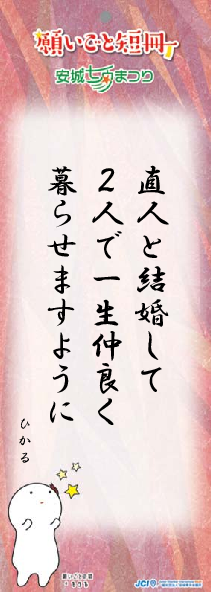 願いごと短冊
安城七夕まつり
直人と結婚して
2人で一生仲良く
暮らせますように
ひかる
願いごと短冊
JCI